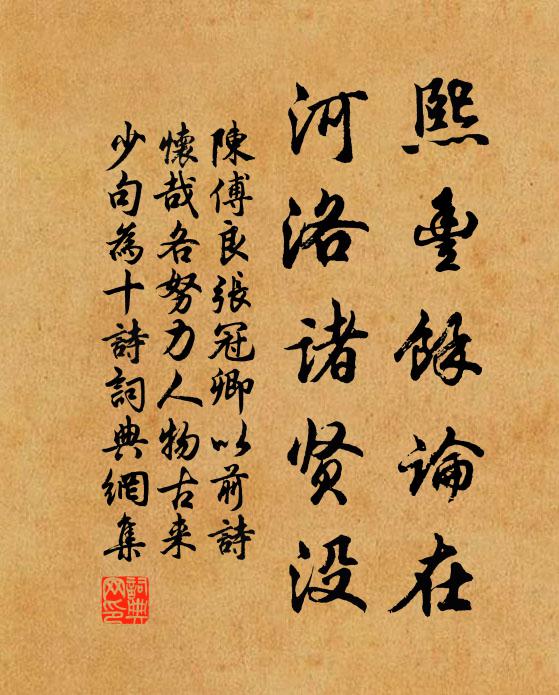 熙豐餘論在
河洛诸贤没
陳傅良張冠卿以前詩
懷哉各努力人物古来
少句為十詩詞典網集
詞典網印